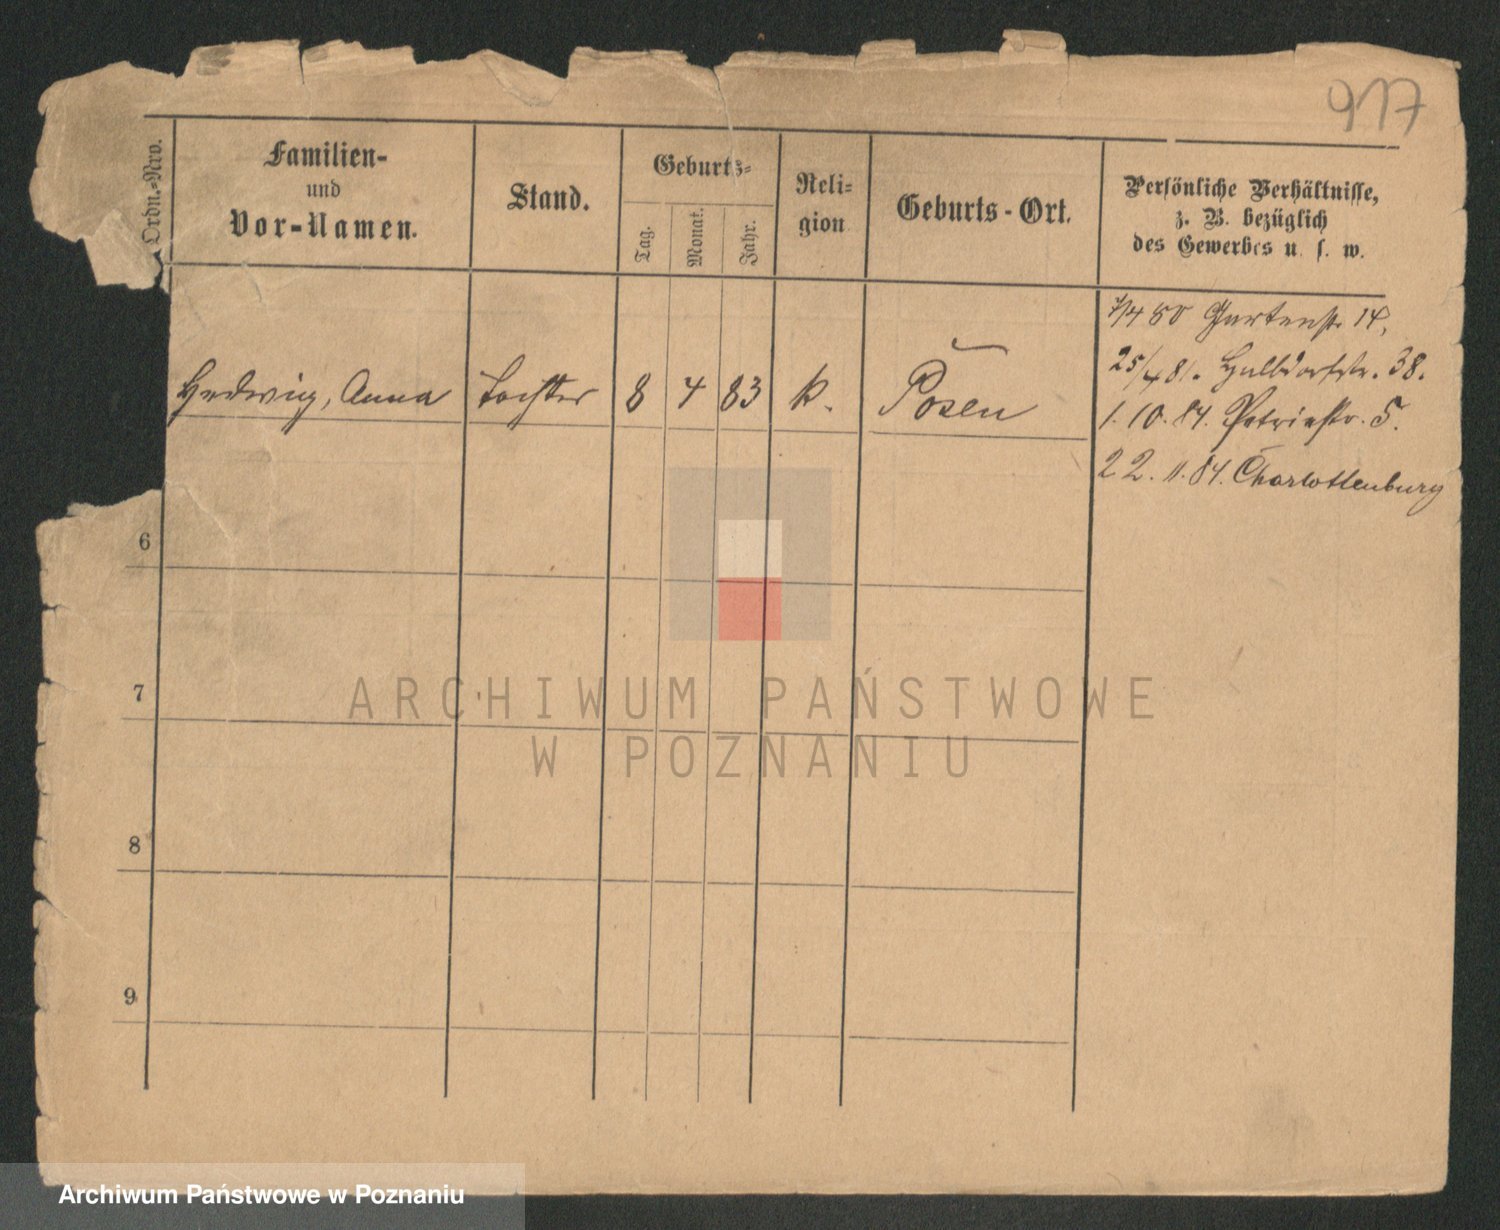 917
Ordn.-Nro.
Familien-
und
Vor-Namen.
Stand.
Geburts-
Tag.
Monat.
Jahr.
Reli-
gion
Geburts-Ort.
Persönliche Verhältnisse,
z. B. bezüglich
des Gewerbes u. s. w.
80 Gartenstr 14,
25/4 81. Halbdorfstr. 38.
Hedwig, Anna Tochter 8 4 83 k. Posen
1. 10. 84. Petristr. 5.
22. 11. 84. Charlottenburg
6
7
8
9
ARCHIWUM PAŃSTWOWE
W POZNANIU
Archiwum Państwowe w Poznaniu